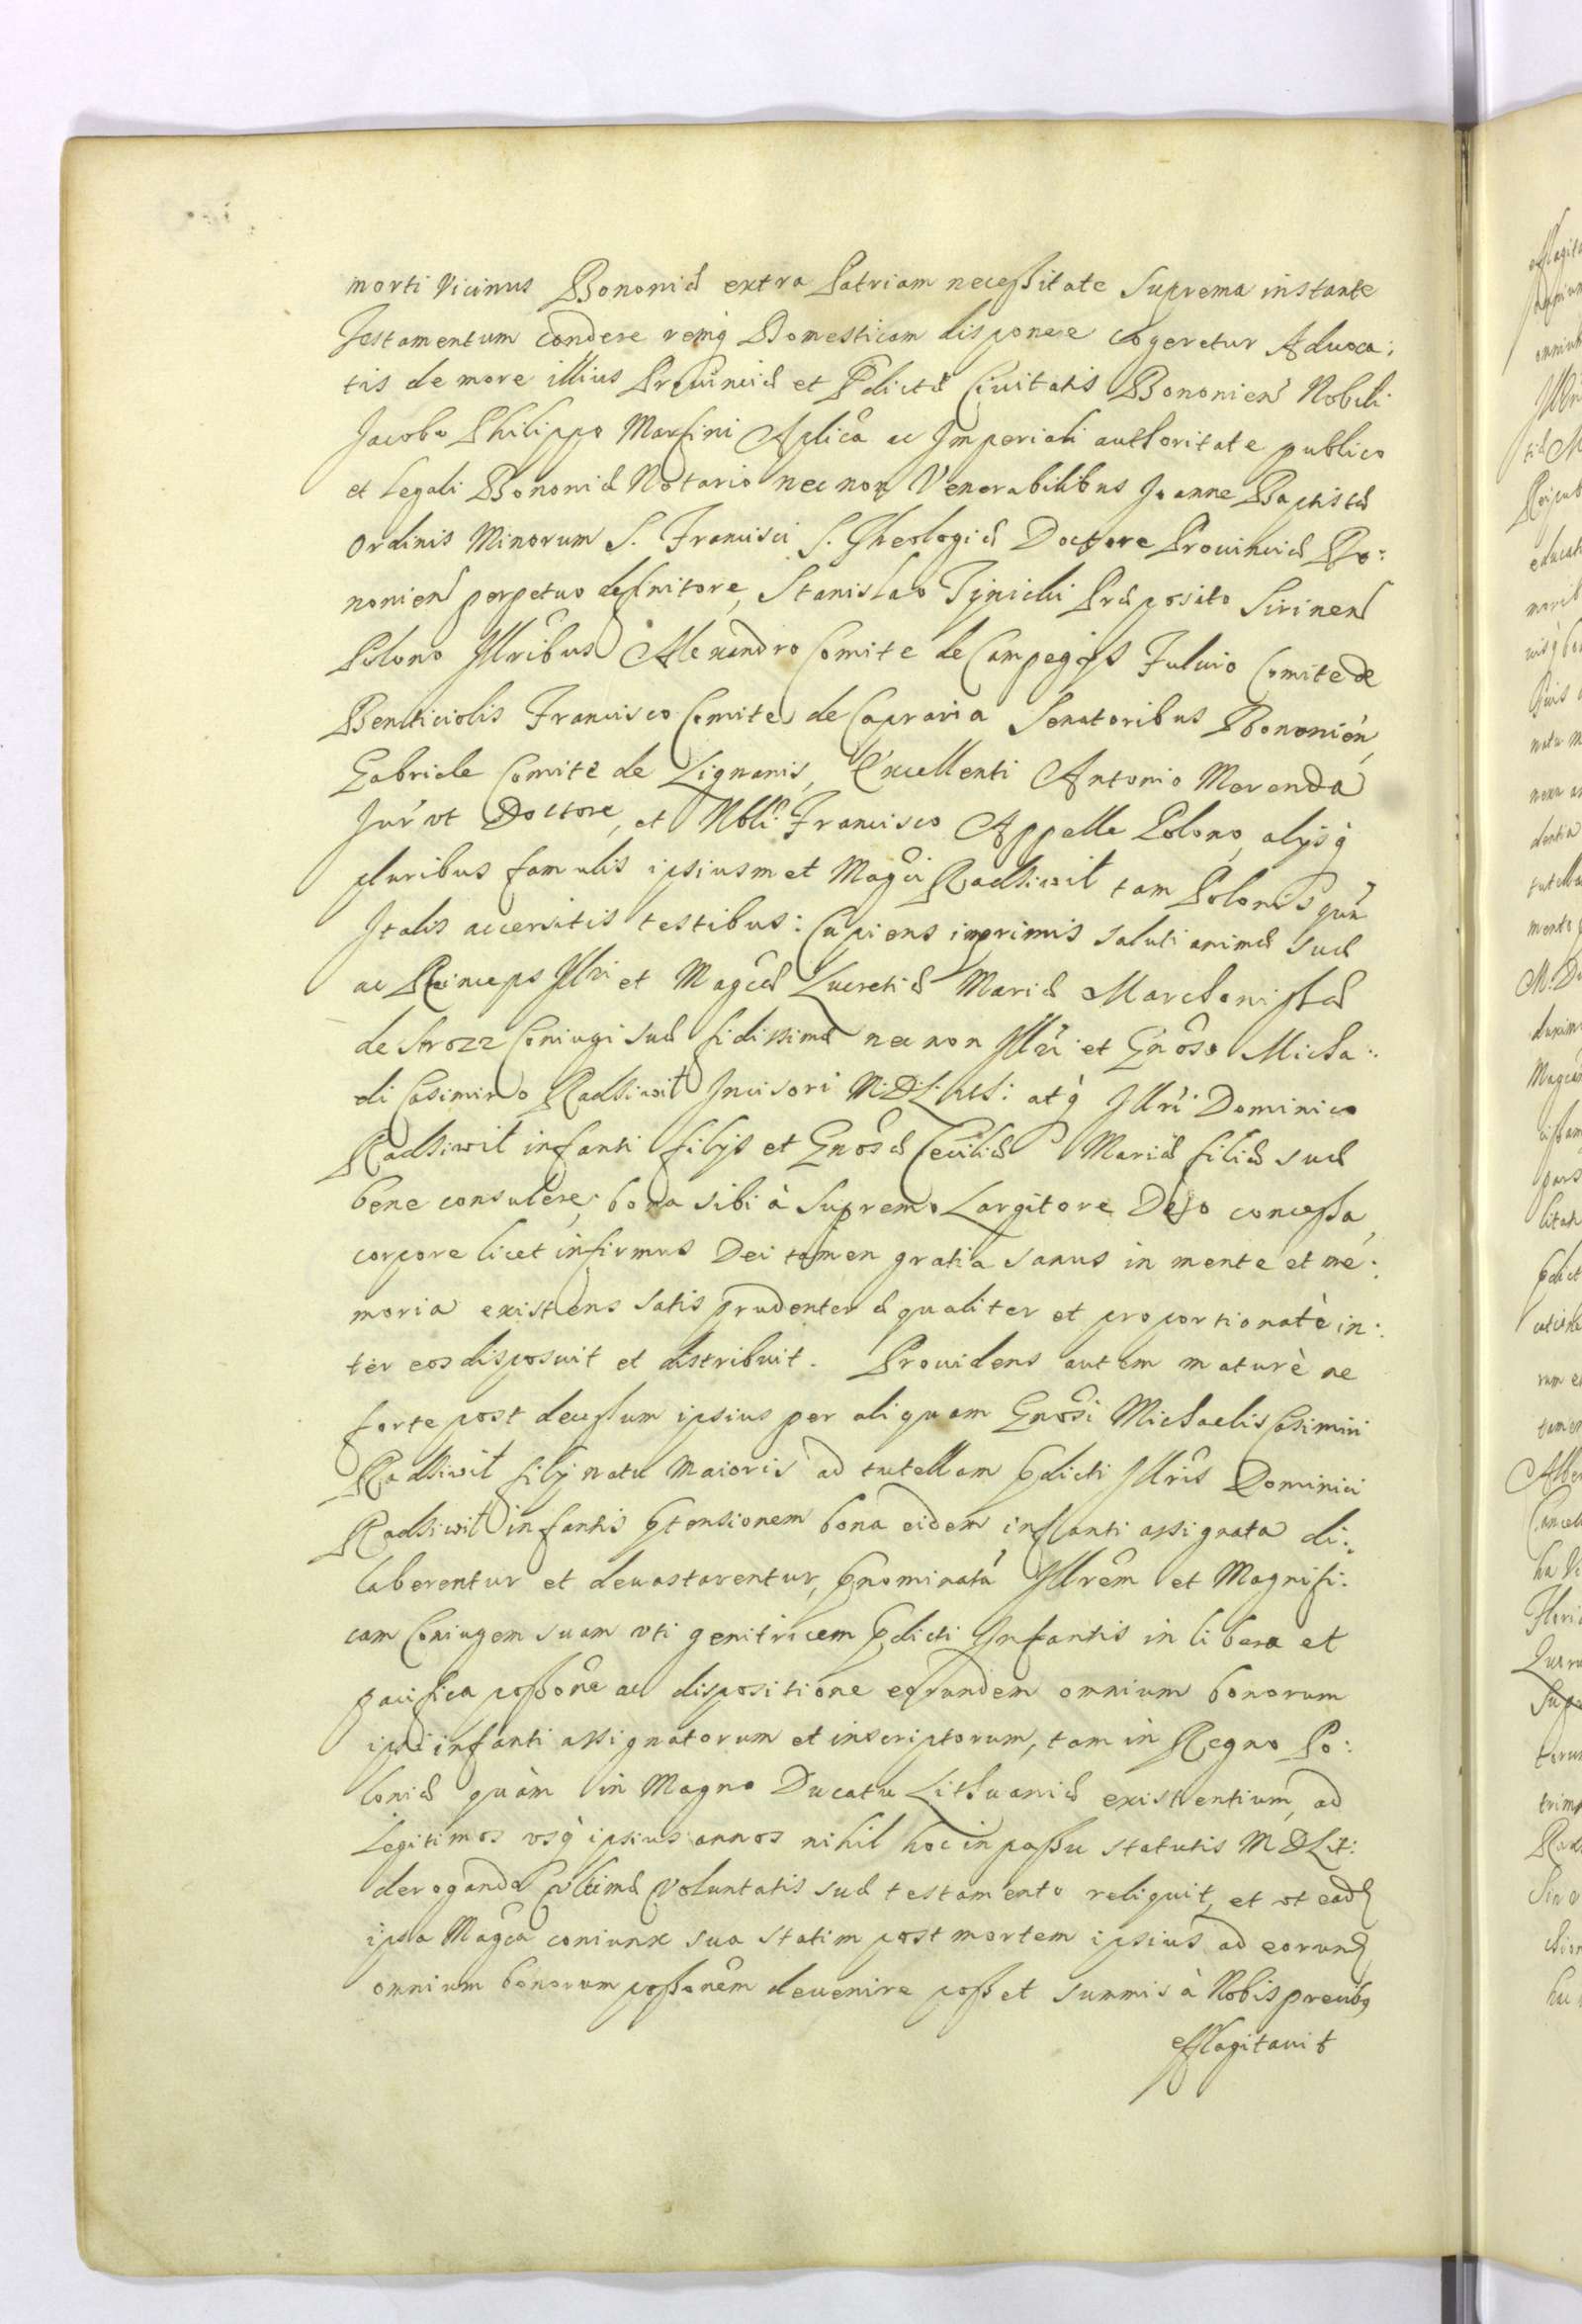 morti Vicinus Bononiæ extra Patriam necessitate Suprema instante
Testamentum condere remq̃ Domesticam disponere cogeretur Aduoca:
tis de more illius Prouinciæ et Pdictæ Ciuitatis Bononien̄ Nobili
Jacobo Philippo Marsini Aplicâ ac Imperiali authoritate publico
et Legali Bononiæ Notario nec non Venerabilibus Joanne Baptistæ
Ordinis Minorum S. Francisci S. Theologiæ Doctore Prouinciæ Bo:
nonien̄ perpetuo definitore, Stanislao Tynicki Præposito Sirinen̄
Polono Jllribus Alexandro Comite de Campegijs Fuluio Comite de
Bentiuolis Francisco Comite de Capraria Senatoribus Bononien̄,
Gabriele Comite de Lignanis, Excellenti Antonio Merenda
Jur̄ vt Doctore, et Nbli Francisco Appelle Polono, alijsq̃
pluribus famulis ipsiusmet Magci Radsiwil tam Polonis quā
Jtalis accersitis testibus: Cupiens inprimis saluti animæ suæ
ac Princeps Jllri et Magcæ Lucretiæ Mariæ Marchonissæ
de Strozz Coniugi suæ fidissimæ nec non Jllri et Gnoso Micha:
eli Casimiro Radsiwil Incisori M: D: L: atq̃ Jllri Dominico
Radsiwil infanti filijs et Gnosæ Ceciliæ Mariæ filiæ suæ
bene consulere; bona sibi à Supremo Largitore Deo concessa,
corpore licet infirmus Dei tamen gratia sanus in mente et me:
moria existens satis prudenter æqualiter et proportionatè in:
ter eos disposuit et distribuit. Prouidens autem maturè ne
forte post decessum ipsius per aliquam Gnosi Michaelis Casimiri
Radsiwil filij natu maioris ad tutellam Pdicti Jllris Dominici
Radsiwil infantis Ptensionem bona eidem infanti assignata di:
laberentur et deuastarentur, Pnominatā Jllrem et Magnifi:
cam Coniugem suam vti genitricem Pdicti Infantis in libera et
pacifica possone ac dispositione eorundem omnium bonorum
ipsi infanti assignatorum et inscriptorum, tam in Regno Po:
loniæ quàm in Magno Ducatu Lithuaniæ existentium, ad
Legitimos vsq̃ ipsius annos nihil hoc in passu statutis M D Lit:
derogando vltimæ Voluntatis suæ testamento reliquit, et vt eadē
ipsa Magca coniunx sua statim post mortem ipsius ad eorundē
omnium bonorum possonem deuenire posset summis à Nobis precibq
efflagitauit